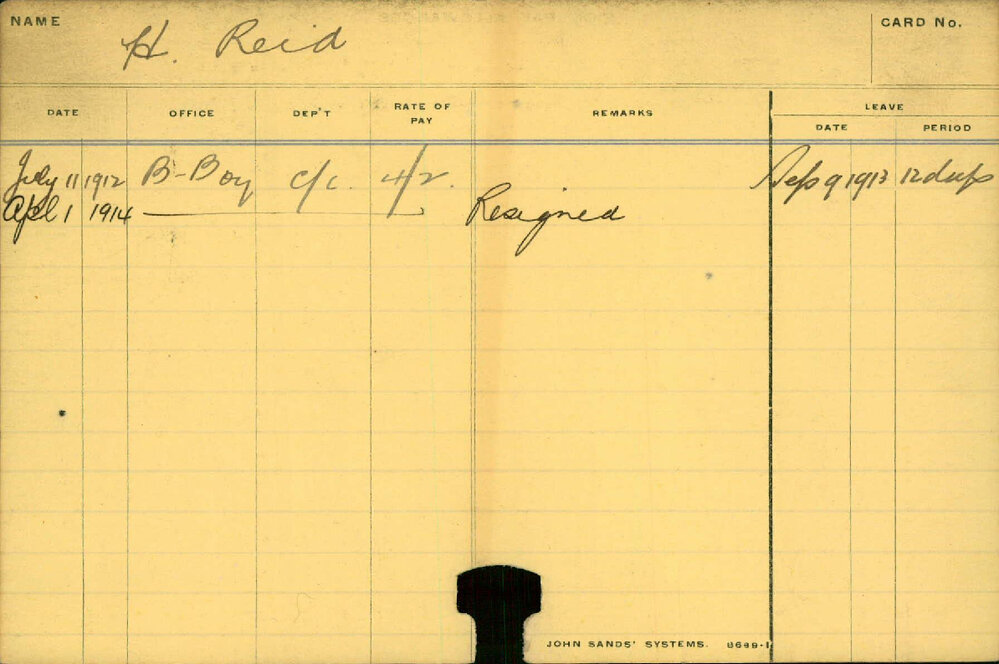 NAME H. Reid CARD No.
DATE OFFICE DEP'T RATE OF PAY REMARKS LEAVE
DATE PERIOD
July 11 1912 B-Boy c/c. 4/2. Sep 9 1913 12 days
Apl 1 1914 Resigned
JOHN SANDS' SYSTEMS. 8689-1